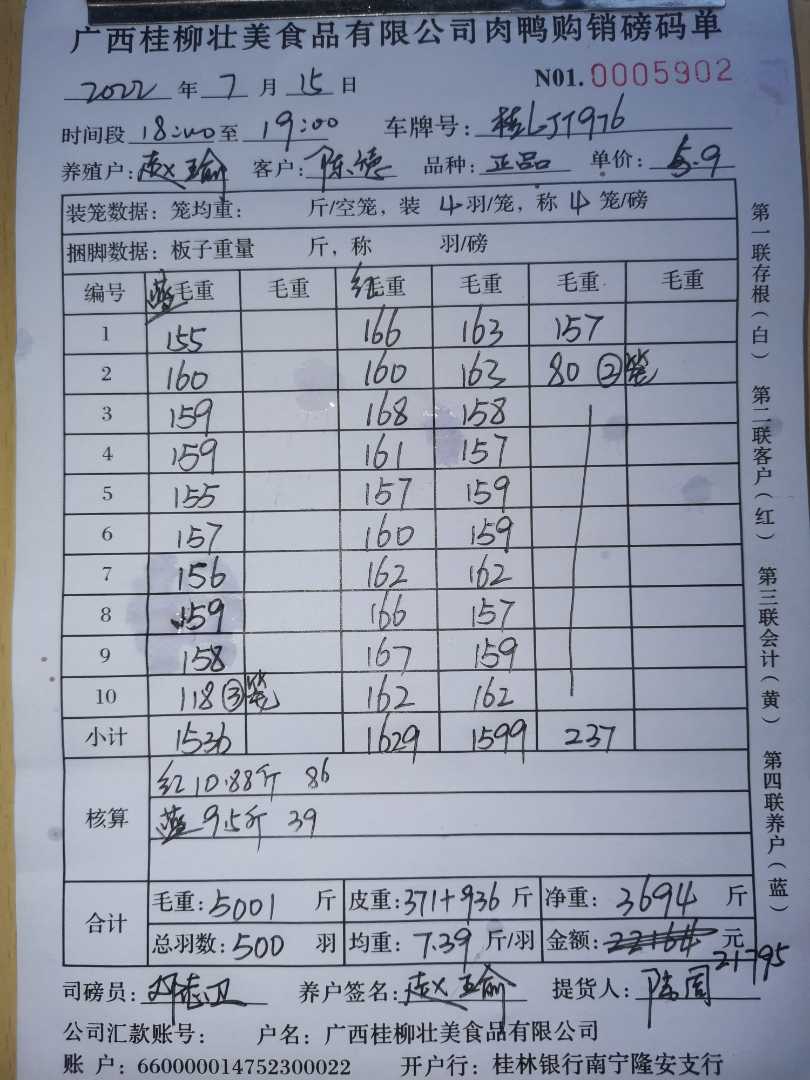 广西桂柳壮美食品有限公司肉鸭购销磅码单
2022 年 7 月 15 日 N01. 0005902
时间段 18:00 至 19:00 车牌号: 桂LJT976
养殖户: 赵玉瑜 客户: 陈德 品种: 正品 单价: 5.9
装笼数据: 笼均重: 斤/空笼, 装 4 羽/笼, 称 4 笼/磅
捆脚数据: 板子重量 斤, 称 羽/磅
编号 蓝毛重 毛重 红毛重 毛重 毛重 毛重
1 155 166 163 157
2 160 160 163 80 ②笼
3 159 168 158
4 159 161 157
5 155 157 159
6 157 160 159
7 156 162 162
8 159 166 157
9 158 167 159
10 118 ③笼 162 162
小计 1536 1629 1599 237
核算
红 10.88斤 86
蓝 9.5斤 39
合计
毛重: 5001 斤 皮重: 371+936 斤 净重: 3694 斤
总羽数: 500 羽 均重: 7.39 斤/羽 金额: 22164 元
21795
司磅员: 养户签名: 赵玉瑜 提货人:
公司汇款账号: 户名: 广西桂柳壮美食品有限公司
账 户: 660000014752300022 开户行: 桂林银行南宁隆安支行
第一联存根(白) 第二联客户(红) 第三联会计(黄) 第四联养户(蓝)